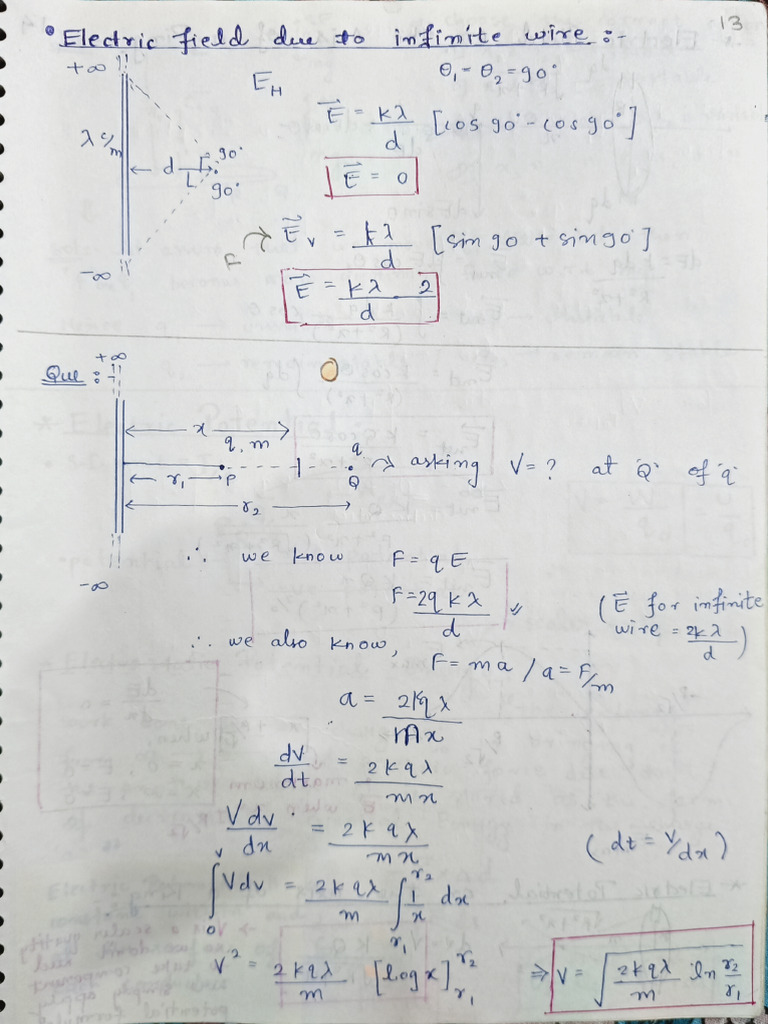 13
• Electric field due to infinite wire :-
+∞
E_H
θ₁ - θ₂ = 90°
λ c/m
d
90°
90°
-∞
E⃗ = kλ/d [cos 90° - cos 90°]
E⃗ = 0
F → E⃗_v = kλ/d [sin 90 + sin 90°]
E⃗ = kλ/d . 2
Que :-
+∞
x
q, m
q
r₁
P
Q
→ asking V = ? at 'Q' of 'q'
r₂
-∞
∴ we know F = qE
F = 2qkλ/d
( E⃗ for infinite
wire = 2kλ/d )
∴ we also know,
F = ma / a = F/m
a = 2kqλ/mx
dv/dt = 2kqλ/mx
Vdv/dx = 2kqλ/mx
( dt = v/dx )
∫₀^v Vdv = 2kqλ/m ∫_r₁^r₂ 1/x dx
V² = 2kqλ/m [log x]_r₁^r₂
⇒ V = √(2kqλ/m ln r₂/r₁)